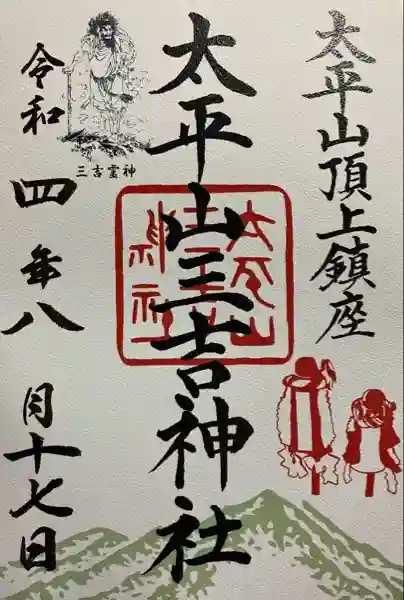 太平山頂上鎮座
太平山三吉神社
三吉霊神
令和四年八月十七日